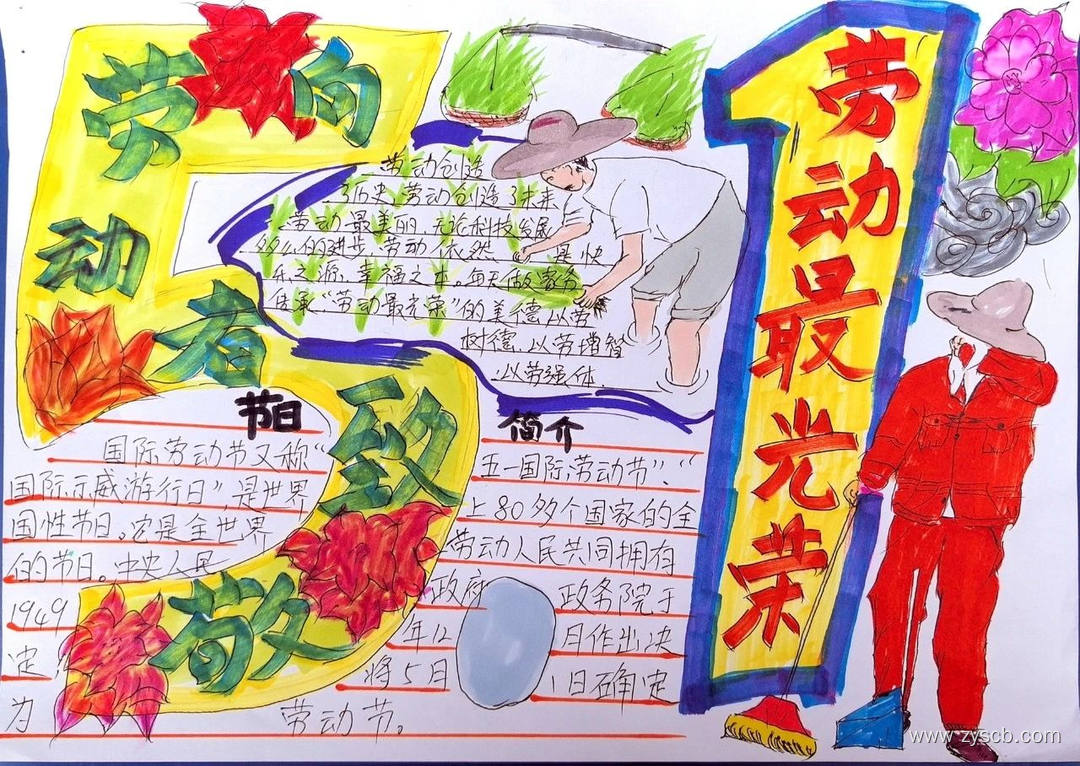 向劳动者致敬
劳动最光荣
劳动创造
了历史,劳动创造了未来
劳动最美丽,无论科技发展
多么的进步,劳动依然是快
乐之源,幸福之本。每天做家务,
传承“劳动最光荣”的美德,以劳
树德,以劳增智
以劳强体
节日 简介
国际劳动节又称“五一国际劳动节”、“
国际示威游行日”,是世界上80多个国家的全
国性节日。它是全世界劳动人民共同拥有
的节日。中央人民政府政务院于
1949年12月作出决
定,将5月1日确定
为劳动节。
www.zyscb.com